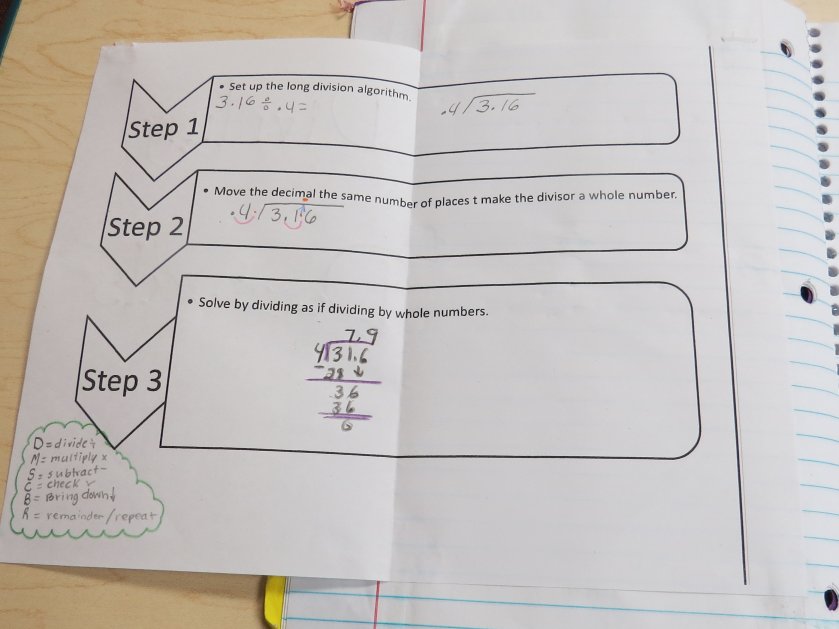 Step 1
• Set up the long division algorithm.
3.16 ÷ .4 =
.4/3.16
Step 2
• Move the decimal the same number of places t make the divisor a whole number.
.4./3.1.6
Step 3
• Solve by dividing as if dividing by whole numbers.
7.9
4/31.6
-28 ↓
36
36
0
D = divide ÷
M = multiply x
S = subtract -
C = check ✓
B = Bring down ↓
R = remainder/repeat